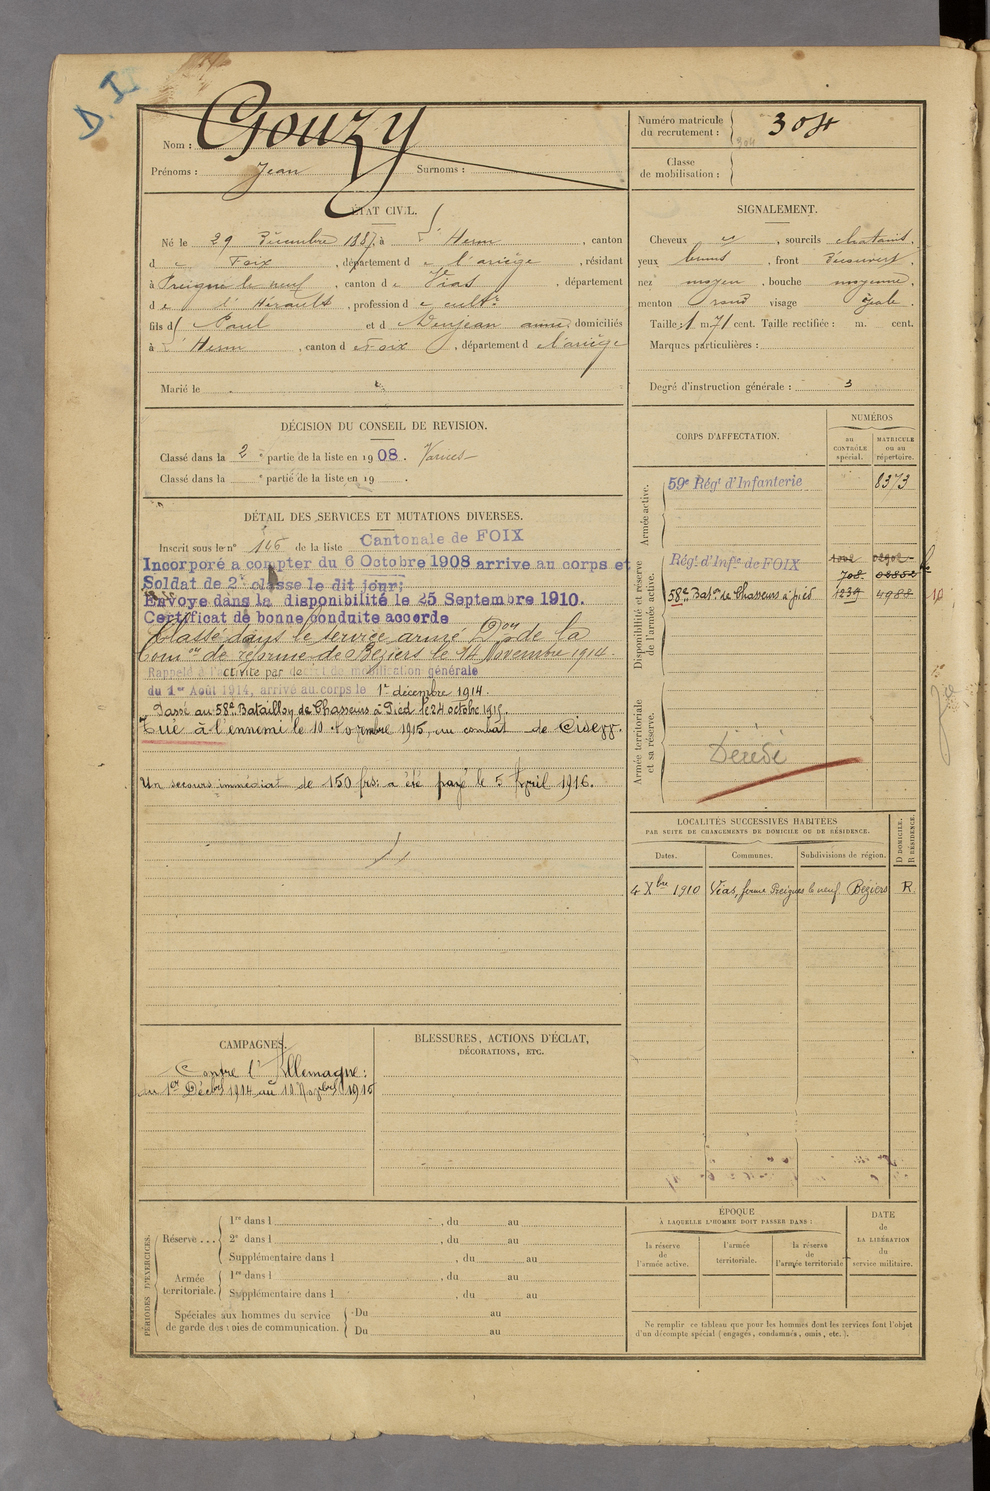 D. I
Nom : Gouzy
Prénoms : Jean Surnoms :
Numéro matricule du recrutement : 304
304
Classe de mobilisation :
ÉTAT CIVIL.
Né le 29 Décembre 1887, à L'Herm, canton
d e Foix, département d e l'ariège, résidant
à Preigne le neuf, canton de Vias, département
d e l'Hérault, profession d e cultr
fils d Paul et d Denjean anne, domiciliés
à L'Herm, canton d e Foix, département d e l'ariège
Marié le
SIGNALEMENT.
Cheveux et, sourcils chatains,
yeux bruns, front Découvert,
nez moyen, bouche moyenne,
menton rond visage ovale.
Taille : 1 m. 71 cent. Taille rectifiée : m. cent.
Marques particulières :
Degré d'instruction générale : 3
DÉCISION DU CONSEIL DE REVISION.
Classé dans la 2e partie de la liste en 1908.
Classé dans la e partie de la liste en 19 .
CORPS D'AFFECTATION.
NUMÉROS
au CONTRÔLE spécial.
MATRICULE ou au répertoire.
Armée active.
59e Régt d'Infanterie 8373
Disponibilité et réserve de l'armée active.
Régt d'Infie de FOIX 1002 02902
708 00852
58e Baton de Chasseurs à pied 1239 4988
Armée territoriale et sa réserve.
Décédé
DÉTAIL DES SERVICES ET MUTATIONS DIVERSES.
Inscrit sous le n° 146 de la liste Cantonale de FOIX
Incorporé à compter du 6 Octobre 1908 arrive au corps et
Soldat de 2e classe le dit jour;
Envoye dans la disponibilité le 25 Septembre 1910.
Certificat de bonne conduite accordé
Classé dans le service armé Don de la
Comon de réforme de Béziers le 14 Novembre 1914.
Rappelé à l'activité par decret de mobilisation générale
du 1er Août 1914, arrivé au corps le 1er décembre 1914.
Passé au 58e Bataillon de Chasseurs à Pied le 24 octobre 1915.
Tué à l'ennemi le 10 Novembre 1915, au combat de
Un secours immédiat de 150 frs: a été payé le 5 Avril 1916.
LOCALITÉS SUCCESSIVES HABITÉES
PAR SUITE DE CHANGEMENTS DE DOMICILE OU DE RÉSIDENCE.
Dates. Communes. Subdivisions de région. D DOMICILE. R RÉSIDENCE.
4 Xbre 1910 Vias, ferme Preignes le neuf Beziers R.
CAMPAGNES.
Contre l'Allemagne :
du 1er Décbre 1914 au 10 Novbre 1915
BLESSURES, ACTIONS D'ÉCLAT,
DÉCORATIONS, ETC.
PÉRIODES D'EXERCICES.
Réserve ...
1re dans l , du au
2e dans l , du au
Supplémentaire dans l , du au
Armée territoriale.
1re dans l , du au
Supplémentaire dans l , du au
Spéciales aux hommes du service de garde des voies de communication.
Du au
Du au
ÉPOQUE
À LAQUELLE L'HOMME DOIT PASSER DANS :
la réserve de l'armée active.
l'armée territoriale.
la réserve de l'armée territoriale
DATE de LA LIBÉRATION du service militaire.
Ne remplir ce tableau que pour les hommes dont les services font l'objet
d'un décompte spécial (engagés, condamnés, omis, etc.).